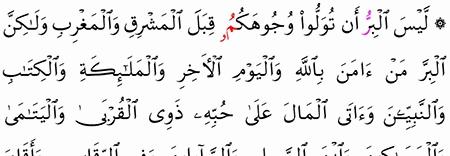 ۞ لَّيْسَ ٱلْبِرُّ أَن تُوَلُّواْ وُجُوهَكُمُۥ قِبَلَ ٱلْمَشْرِقِ وَٱلْمَغْرِبِ وَلَٰكِنَّ
ٱلْبِرَّ مَنْ ءَامَنَ بِٱللَّهِ وَٱلْيَوْمِ ٱلْأَخِرِ وَٱلْمَلَٰٓئِكَةِ وَٱلْكِتَٰبِ
وَٱلنَّبِيِّـۧنَ وَءَاتَى ٱلْمَالَ عَلَىٰ حُبِّهِۦ ذَوِى ٱلْقُرْبَىٰ وَٱلْيَتَٰمَىٰ